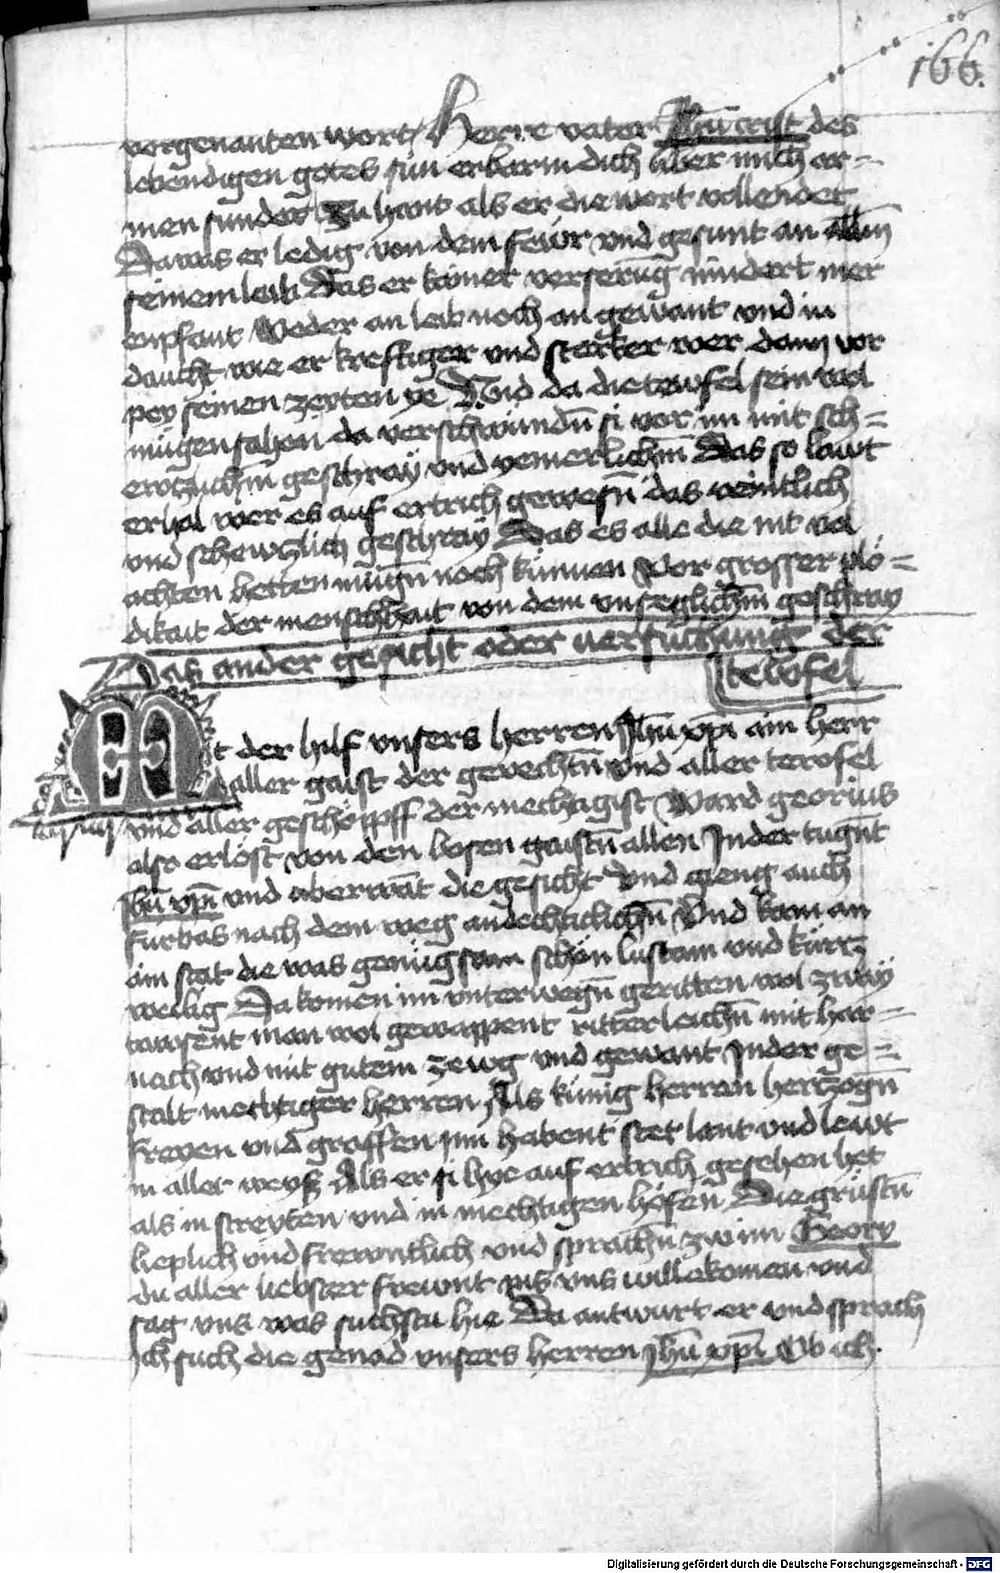 166.
vorgenanten wort / Herre vater Jhu crist des
lebendigen gotes sun erbarm dich uber mich ar=
men sunder Zu hant als er die wort vollendet
Da was er ledig von dem fewr und gesunt an allem
seinem leib Das er keiner verserung nindert mer
enpfant Weder an leib noch an gewant und in
daucht wie er kreftiger und sterker wer dann vor
pey seinen zeyten ye Und da die tewfel sein nit
mügen sahen da verschwundn si vor im mit sch=
geschray und Das so lawt
erhal wer es auf ertrich gewesn das
und schewtzlich geschray Das es alle die nit
achten hetten mügn noch künnen Vor grosser plö=
dikait der menschhait von dem unseglichem geschray
Das ander gesicht oder versuchung der
tewfel
Mit der hilf unsers herren Jhu xpi ain herr
aller gaist der gerechtn und aller tewfel
und aller geschöpff der mechtigist Ward georius
also erlöst von den bosen gaistn allen In der tugnt
Jhu xpi und uberwat die gesicht Und gieng auch
fürbas nach dem weg andechticlichn Und kam an
ain stat die was genügsam schön lustsam und kurtz
weilig Da komen im unterwegn geritten wol zway
tawsent man wol gewappent ritterleichn mit har=
nach und mit gutem zewg und gewant In der ge=
stalt mechtiger herren Als künig herren hertzogn
freyen und graffen im habent stet lant und lewt
in aller weyss Als er si hye auf ertrich gesehen het
als in streyten und in mechtigen höfen Die grüstn
lieplich und frewntlich und sprachn zu im Geory
du aller liebster frewnt pis uns willekomen und
sag uns was suchstu hie Da antwurt er und sprach
Ich such die genad unsers herren Jhu xpi Ob ich
Digitalisierung gefördert durch die Deutsche Forschungsgemeinschaft - DFG